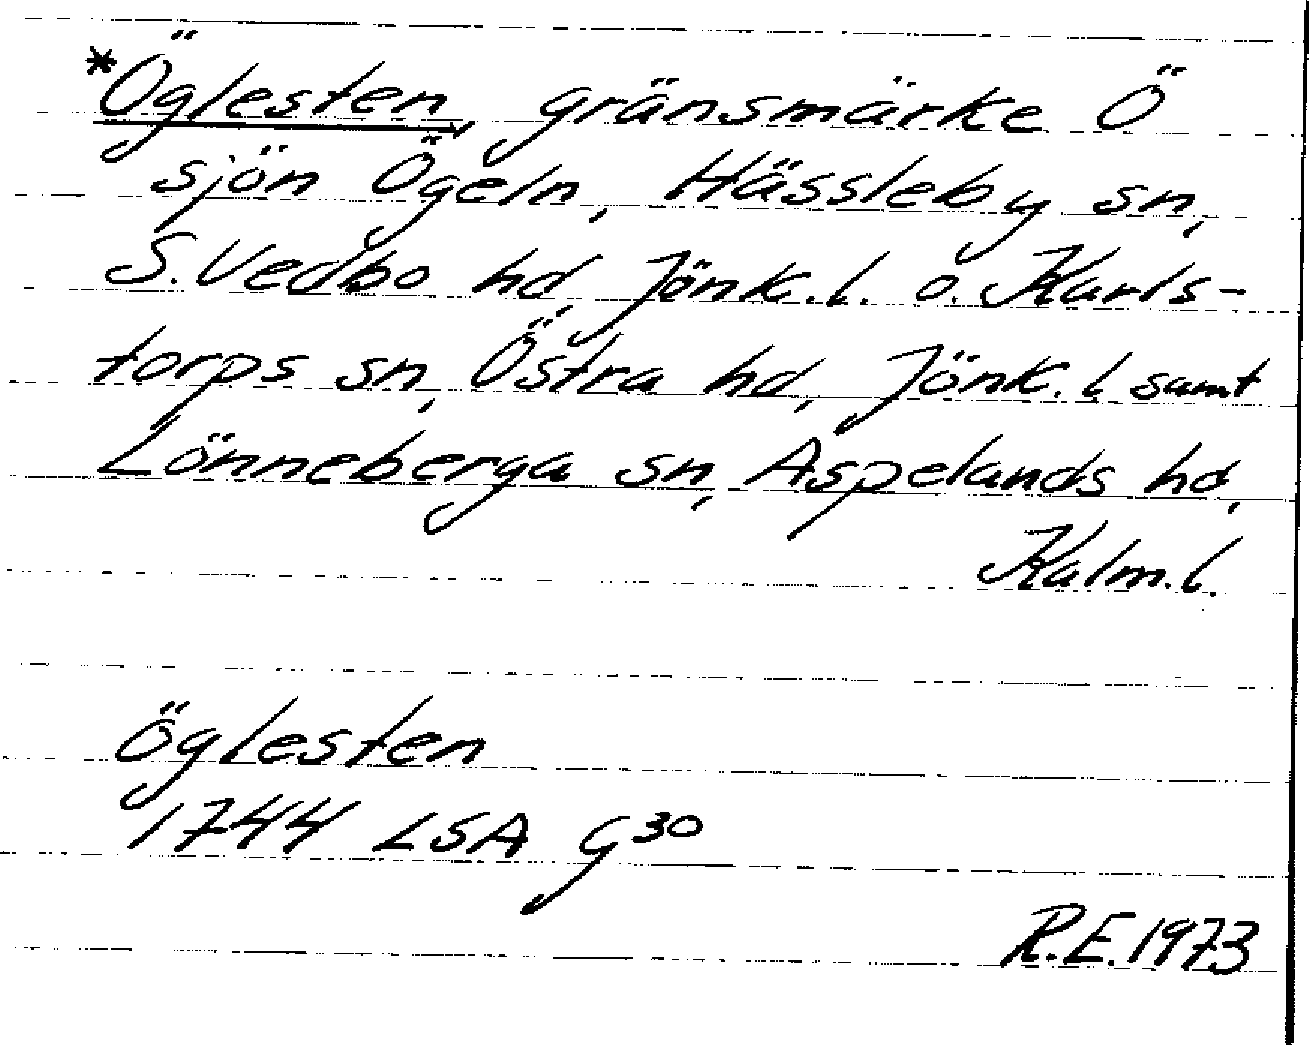 *Öglesten, gränsmärke Ö
sjön Ögeln, Hässleby sn,
S. Vedbo hd, Jönk. l. o. Karls-
torps sn, Östra hd, Jönk. l samt
Lönneberga sn, Aspelands hd,
Kalm. l.
Öglesten
1744 LSA G30
R.E. 1973